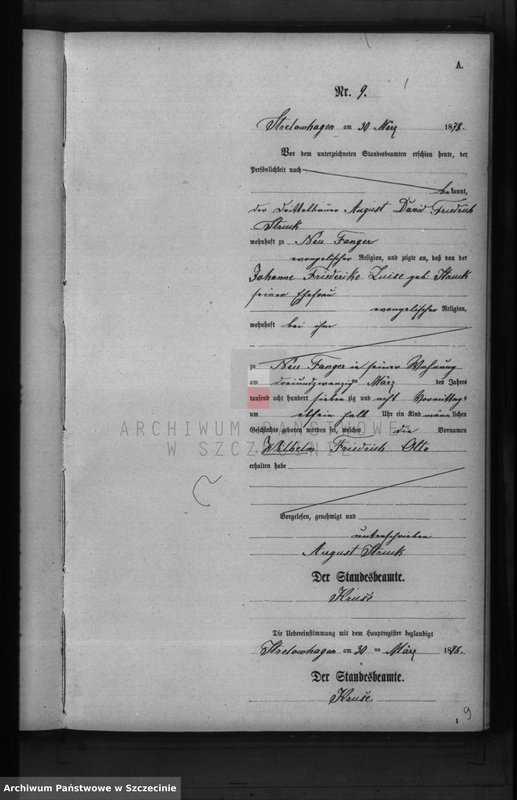 A.
Nr. 9.
Strelowhagen am 30 März 1878.
Vor dem unterzeichneten Standesbeamten erschien heute, der
Persönlichkeit nach
bekannt,
der Drittelbauer August David Friedrich
Struck
wohnhaft zu Neu Fanger
evangelischer Religion, und zeigte an, daß von der
Johanne Friederike Luise geb. Struck
seiner Ehefrau
evangelischer Religion,
wohnhaft bei ihm
zu Neu Fanger in seiner Wohnung
am dreiundzwanzigten März des Jahres
tausend acht hundert siebenzig und acht Vormittags
um elfeinhalb Uhr ein Kind männlichen
Geschlechts geboren worden sei, welches die Vornamen
Wilhelm Friedrich Otto
erhalten habe
Vorgelesen, genehmigt und
unterschrieben
August Struck
Der Standesbeamte.
Kruse
Die Uebereinstimmung mit dem Hauptregister beglaubigt
Strelowhagen am 30 ten März 1878.
Der Standesbeamte.
Kruse.
1
9
ARCHIWUM PAŃSTWOWE
W SZCZECINIE
Archiwum Państwowe w Szczecinie